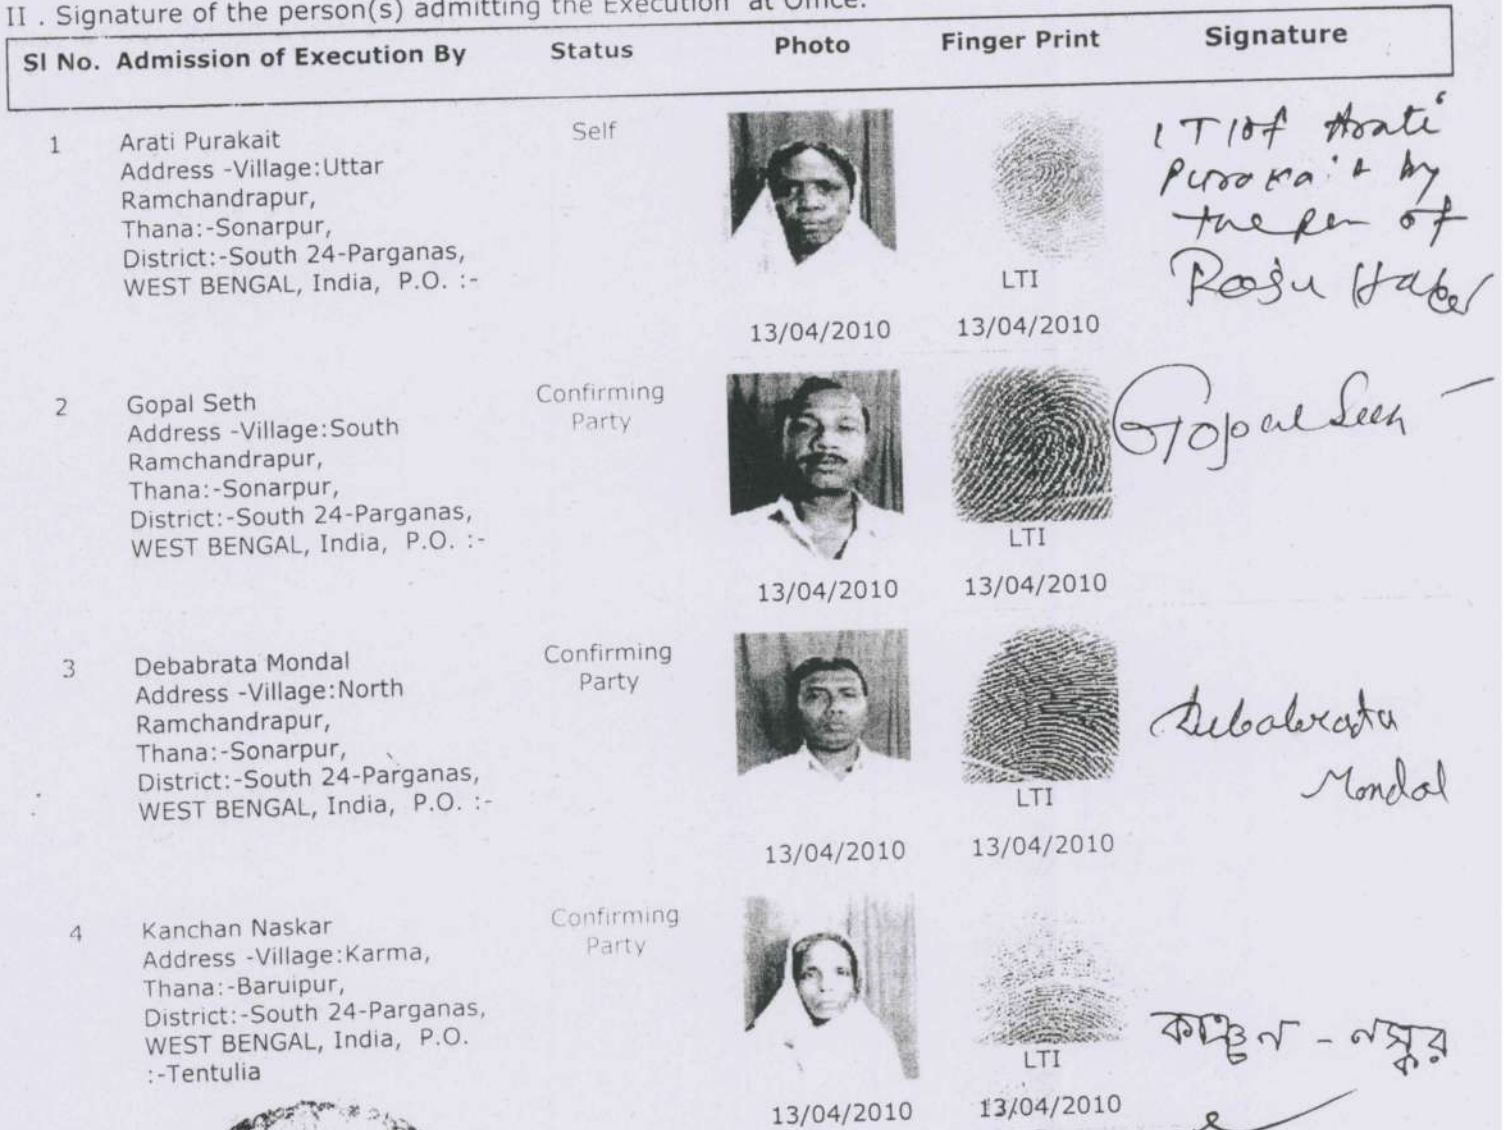 II . Signature of the person(s) admitting the Execution at Office.
Sl No. Admission of Execution By Status Photo Finger Print Signature
1 Arati Purakait Self
Address -Village:Uttar
Ramchandrapur,
Thana:-Sonarpur,
District:-South 24-Parganas,
WEST BENGAL, India, P.O. :-
LTI
13/04/2010 13/04/2010
LTI of Arati
Purakait by
the pen of
2 Gopal Seth Confirming
Party
Address -Village:South
Ramchandrapur,
Thana:-Sonarpur,
District:-South 24-Parganas,
WEST BENGAL, India, P.O. :-
LTI
13/04/2010 13/04/2010
Gopal Seth
3 Debabrata Mondal Confirming
Party
Address -Village:North
Ramchandrapur,
Thana:-Sonarpur,
District:-South 24-Parganas,
WEST BENGAL, India, P.O. :-
LTI
13/04/2010 13/04/2010
Debabrata
Mondal
4 Kanchan Naskar Confirming
Party
Address -Village:Karma,
Thana:-Baruipur,
District:-South 24-Parganas,
WEST BENGAL, India, P.O.
:-Tentulia
LTI
13/04/2010 13/04/2010
কাঞ্চন - নস্কর